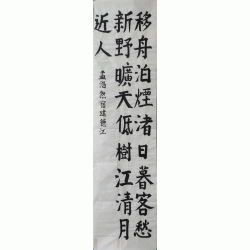 移舟泊煙渚日暮客愁
新野曠天低樹江清月
近人
孟浩然宿建德江